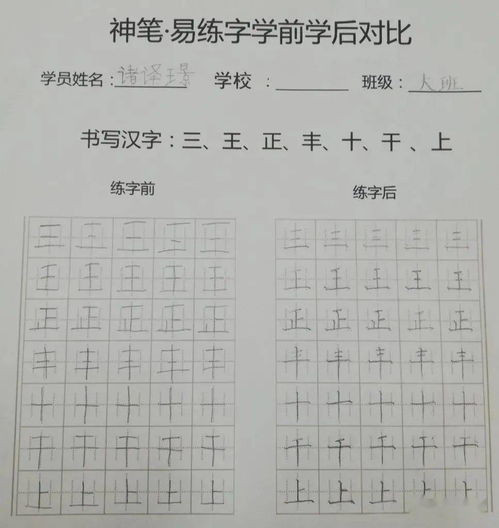 神笔·易练字学前学后对比
学员姓名：诸译璟 学校： 班级：大班
书写汉字：三、王、正、丰、十、干、上
练字前 练字后
三 三 三 三 三 三 三 三 三 三
王 王 王 王 王 王 王 王 王 王
正 正 正 正 正 正 正 正 正 正
丰 丰 丰 丰 丰 丰 丰 丰 丰 丰
十 十 十 十 十 十 十 十 十 十
干 干 干 干 干 干 干 干 干 干
上 上 上 上 上 上 上 上 上 上